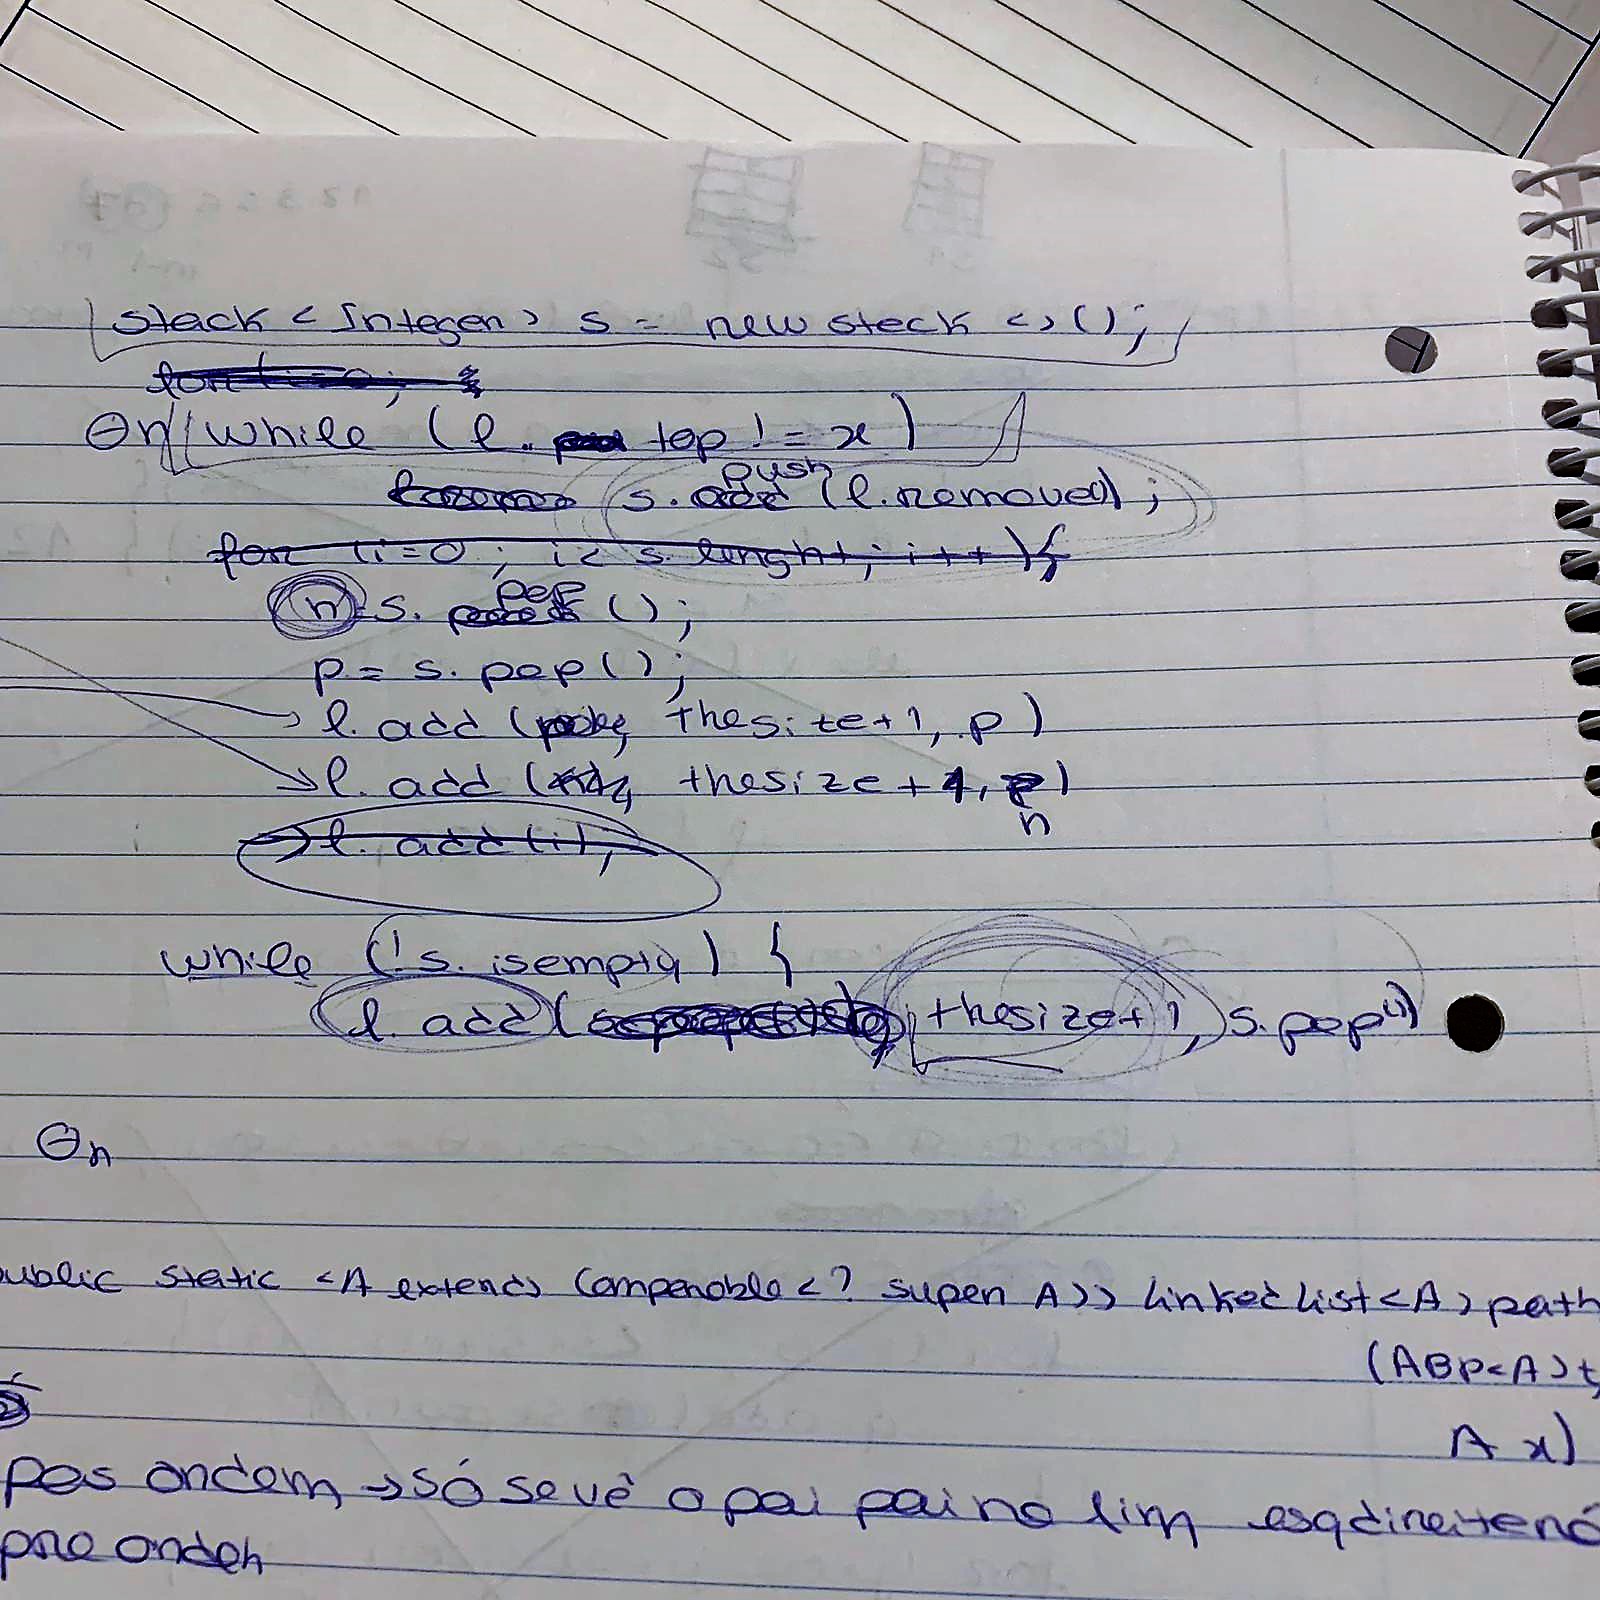 Stack < Integer > s = new stack <>();
for (i=0;
Θn while (l. top != x)
push
s. add (l.remove());
for (i=0; i< s. lenght; i++){
n = s. pop ();
p = s. pop();
l. add ( thesize+1, p)
l. add ( thesize+1, n)
→ l. add(i);
while (!s. isempty) {
l. add ( thesize+1, s.pop())
Θn
public static <A extends Comparable<? super A>> Linked List<A> path
(ABP<A> t,
A x)
pos ordem → só se vê o pai pai no fim esqdireitenó
pre ordem